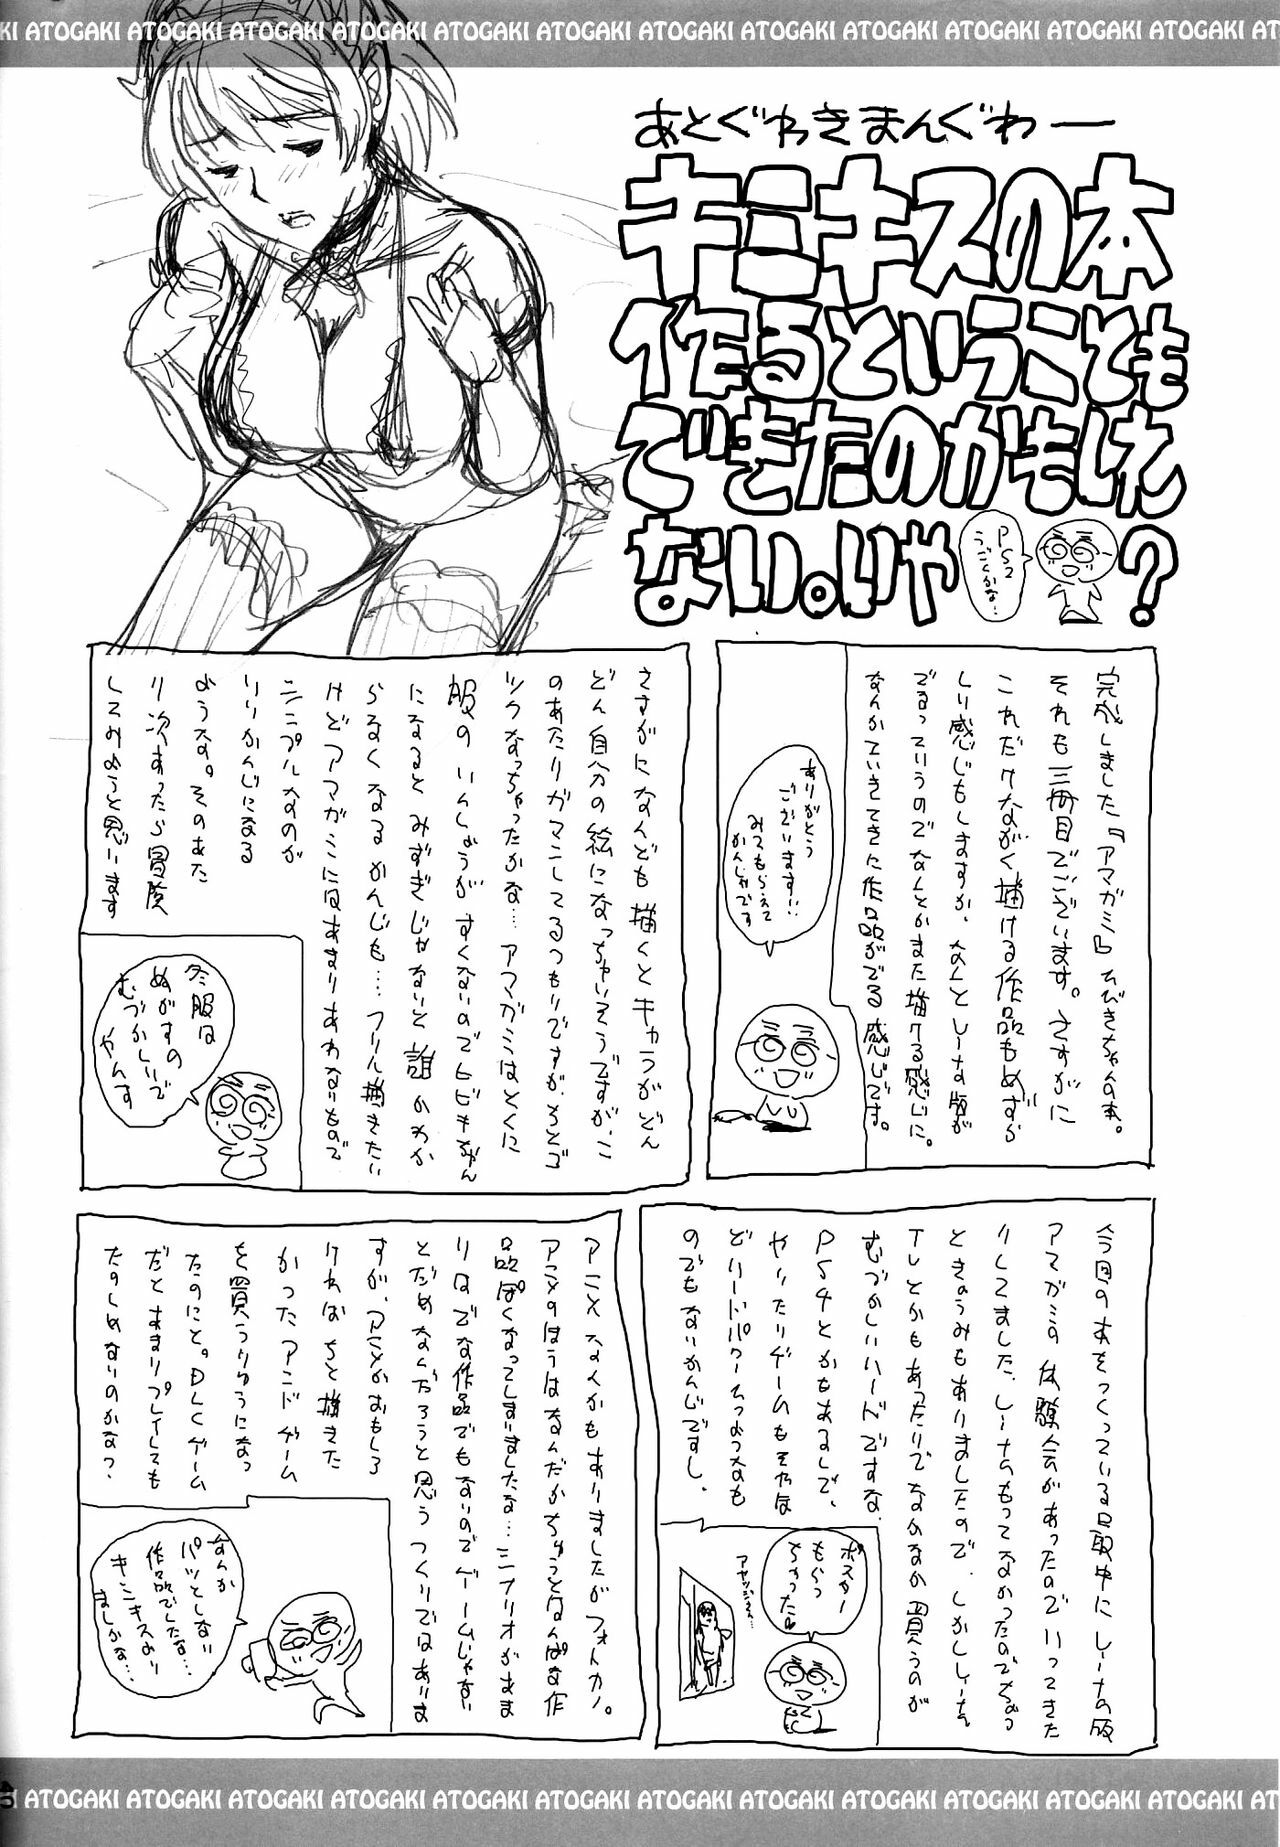 KI ATOGAKI ATOGAKI ATOGAKI ATOGAKI ATOGAKI ATOGAKI ATOGAKI ATOGAKI ATOGAKI ATOGAKI ATOGAKI ATOGAKI AT
あとぐわきまんぐわー
キミキスの本
作るということも
できたのかもしれ
ない。いや
？
PS2
うごくかな…
完成しました『アマガミ』ひびきちゃんの本。
それも三冊目でございます。さすがに
これだけながく描ける作品もめずら
しい感じもしますが、なんとビータ版が
でるっていうのでなんとかまた描ける感じに。
なんかていきてきに作品がでる感じです。
ありがとう
ございます!!
みてもらえて
かんしゃです
さすがになんども描くとキャラがどん
どん自分の絵になっちゃいそうですが、こ
のあたりガマンしてるつもりですが、ちとゴ
ツクなっちゃったかな…アマガミはとくに
服のいんしょうがすくないのでヒビキちゃん
になるとみずぎじゃないと誰かわか
らなくなるかんじも…フリル描きたい
けどアマガミにはあまりあわないもので
シンプルなのが
いいかんじになる
ような。そのあた
り次あったら冒険
してみようと思います
冬服は
ぬがすの
むづかしいで
やんす
今回の本をつくっている最中にビータ版
アマガミの体験会があったのでいってきた
りしてました。ビータもってなかったのでちょっ
ときょうみもありましたので、しかしビータ
TVとかもあったりでなかなか買うのが
むづかしいハードですな。
PS4とかもあるしで、
やったりゲームもそれほ
どハードパワーつかうのも
のでもないかんじですし。
ポスター
もらっ
ちゃった♥
アヤツジさん…
アニメなんかもありましたがフォトカノ。
アニメのほうはなんだかちゅうとはんぱな作
品ぽくなってしまいましたな…シナリオがあま
りはでな作品でもないのでゲームじゃない
とだめなんだろうと思うつくりではありま
すが、アニメがおもしろ
ければちと描きた
かったアンドゲーム
を買うりゆうになっ
たのにと。DLCゲーム
だとあまりプレイしても
たのしめないのかなっ、
なんか
パッとしない
作品でしたな…
キミキスより
ましかな…
KI ATOGAKI ATOGAKI ATOGAKI ATOGAKI ATOGAKI ATOGAKI ATOGAKI ATOGAKI ATOGAKI ATOGAKI ATOGAKI ATOGAKI AT